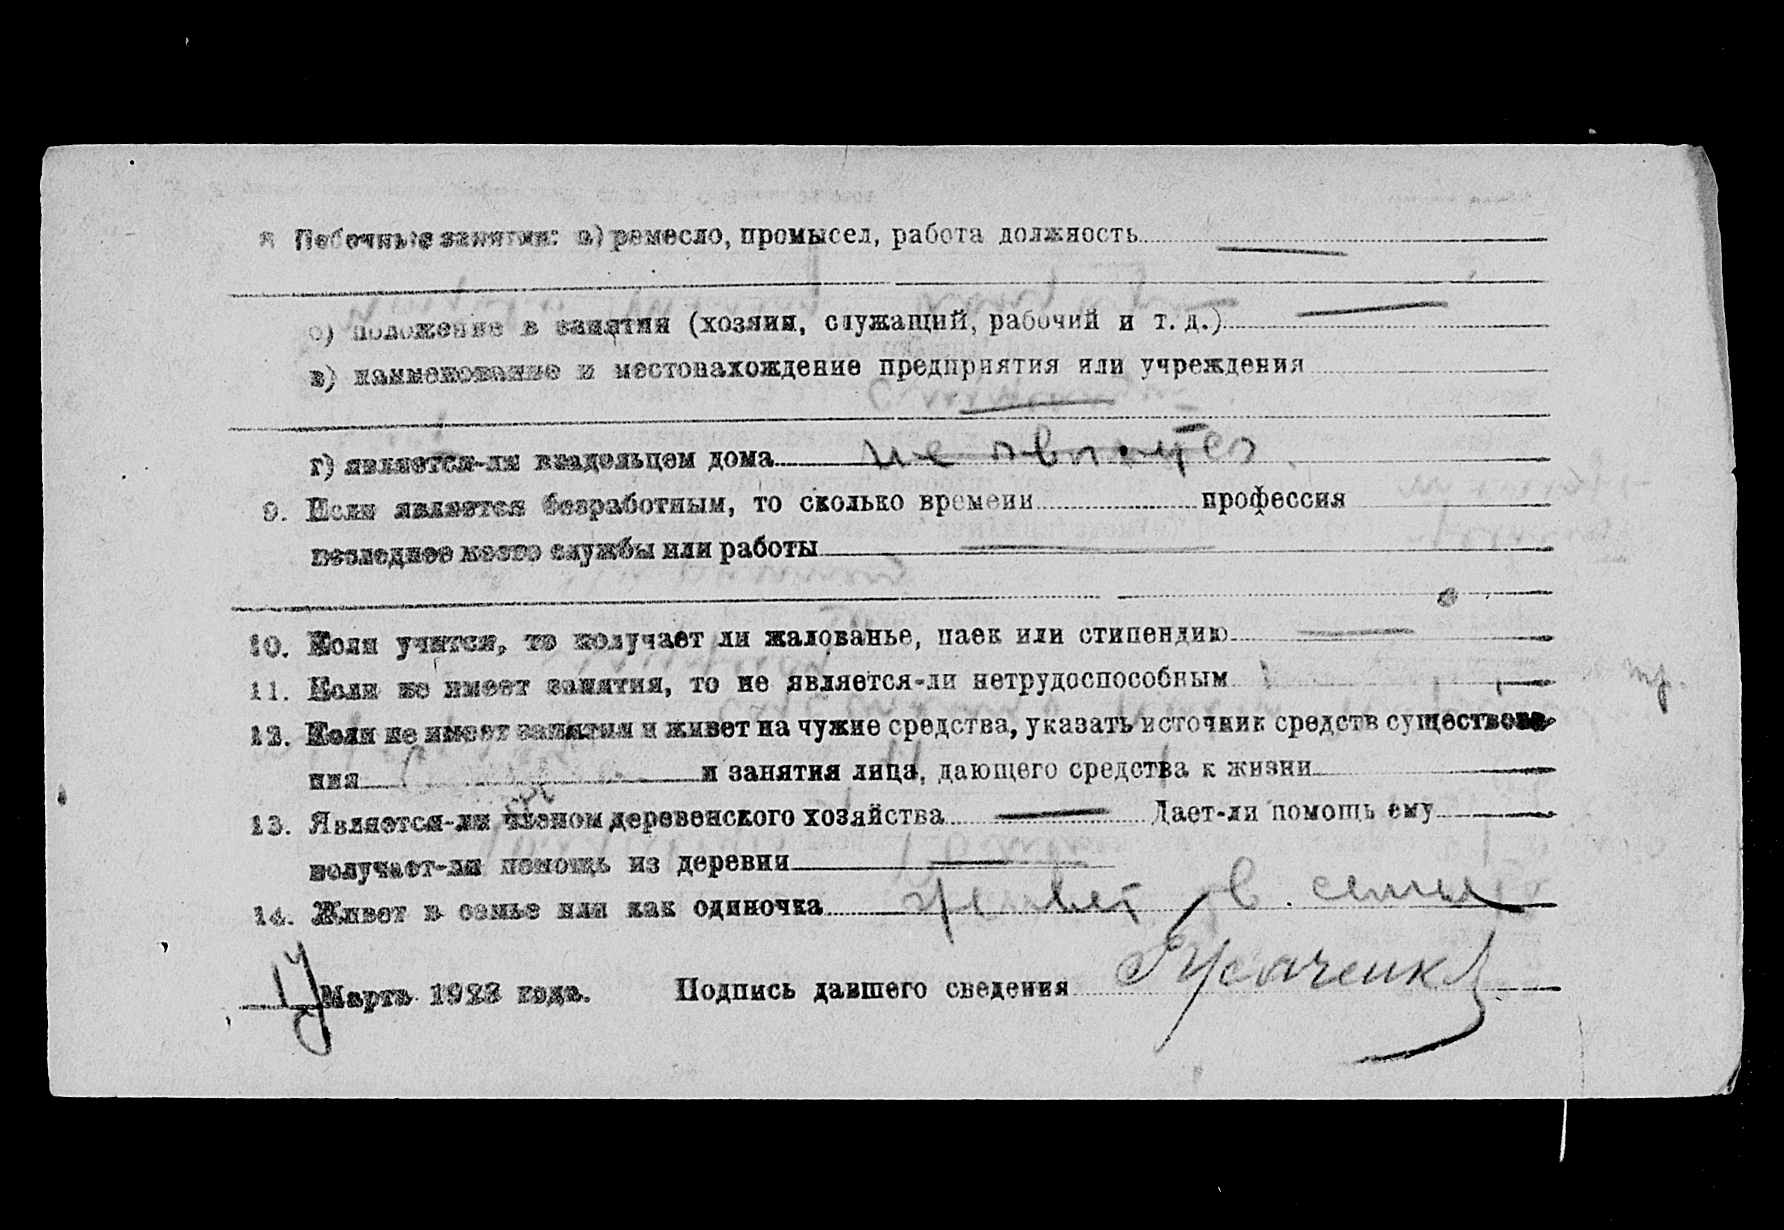 8 Побочные занятия: а) ремесло, промысел, работа должность
б) положение в занятии (хозяин, служащий, рабочий и т. д.)
в) наименование и местонахождение предприятия или учреждения
г) является-ли владельцем дома не является
9. Если является безработным, то сколько времени профессия
последнее место службы или работы
10. Если учится, то получает ли жалованье, паек или стипендию
11. Если не имеет занятия, то не является-ли нетрудоспособным
12. Если не имеет занятия и живет на чужие средства, указать источник средств существова-
ния и занятия лица, дающего средства к жизни
13. Является-ли членом деревенского хозяйства Дает-ли помощь ему
получает-ли помощь из деревни
14. Живет в семье или как одиночка живет в семье
Марта 1923 года. Подпись давшего сведения